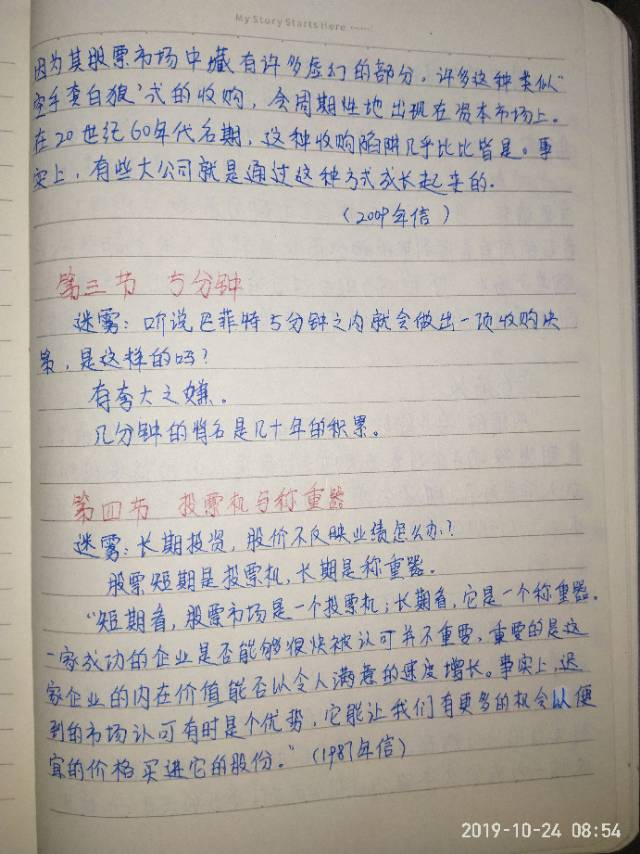 My Story Starts Here ······
因为其股票市场中藏有许多虚幻的部分。许多这种类似“
空手套白狼”式的收购,会周期性地出现在资本市场上。
在20世纪60年代后期,这种收购陷阱几乎比比皆是。事
实上,有些大公司就是通过这种方式成长起来的。
(2009年信)
第三节 5分钟
迷雾:听说巴菲特5分钟之内就会做出一项收购决
策,是这样的吗?
有夸大之嫌。
几分钟的背后是几十年的积累。
第四节 投票机与称重器
迷雾:长期投资,股价不反映业绩怎么办?
股票短期是投票机,长期是称重器。
“短期看,股票市场是一个投票机;长期看,它是一个称重器。
一家成功的企业是否能够很快被认可并不重要,重要的是这
家企业的内在价值能否以令人满意的速度增长。事实上,迟
到的市场认可有时是个优势,它能让我们有更多的机会以便
宜的价格买进它的股份。”(1987年信)
2019-10-24 08:54